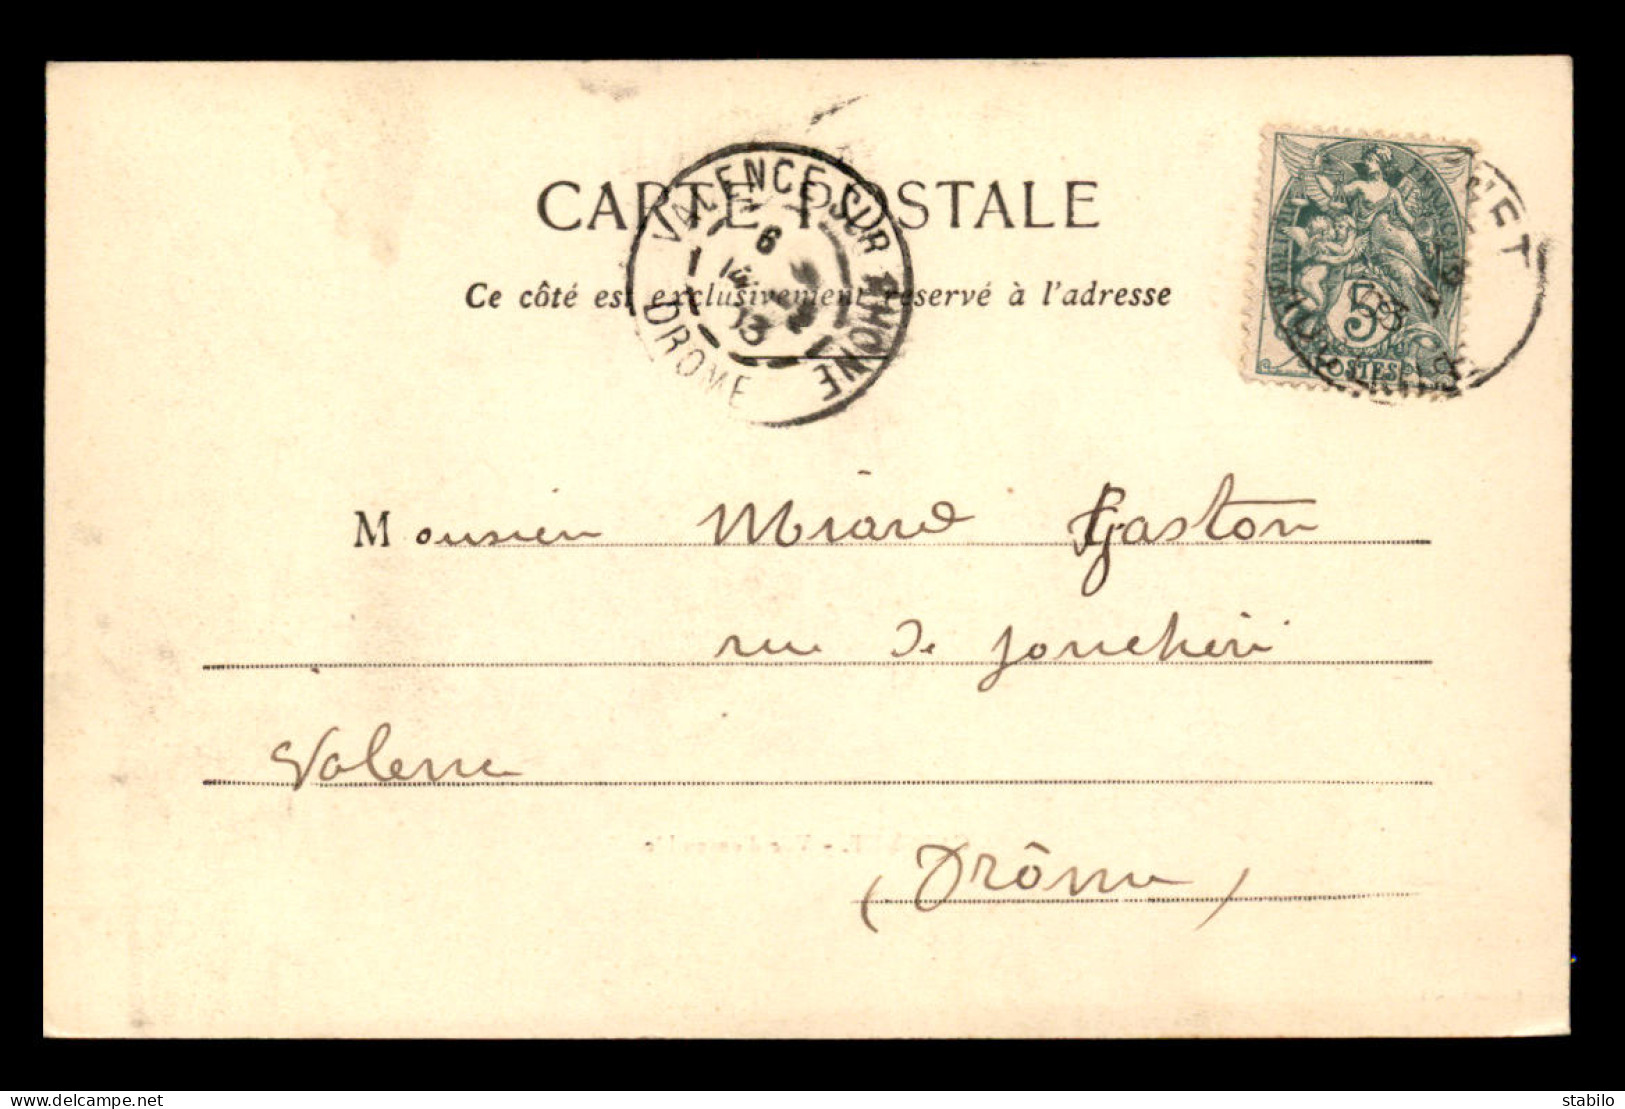 CARTE POSTALE
Ce côté est exclusivement réservé à l'adresse
VALENCE-SUR-RHONE
6
03
DROME
5
POSTES
Monsieur Miard Gaston
rue de Joncheri
Valence
(Drôme)
delcampe.net
stabilo